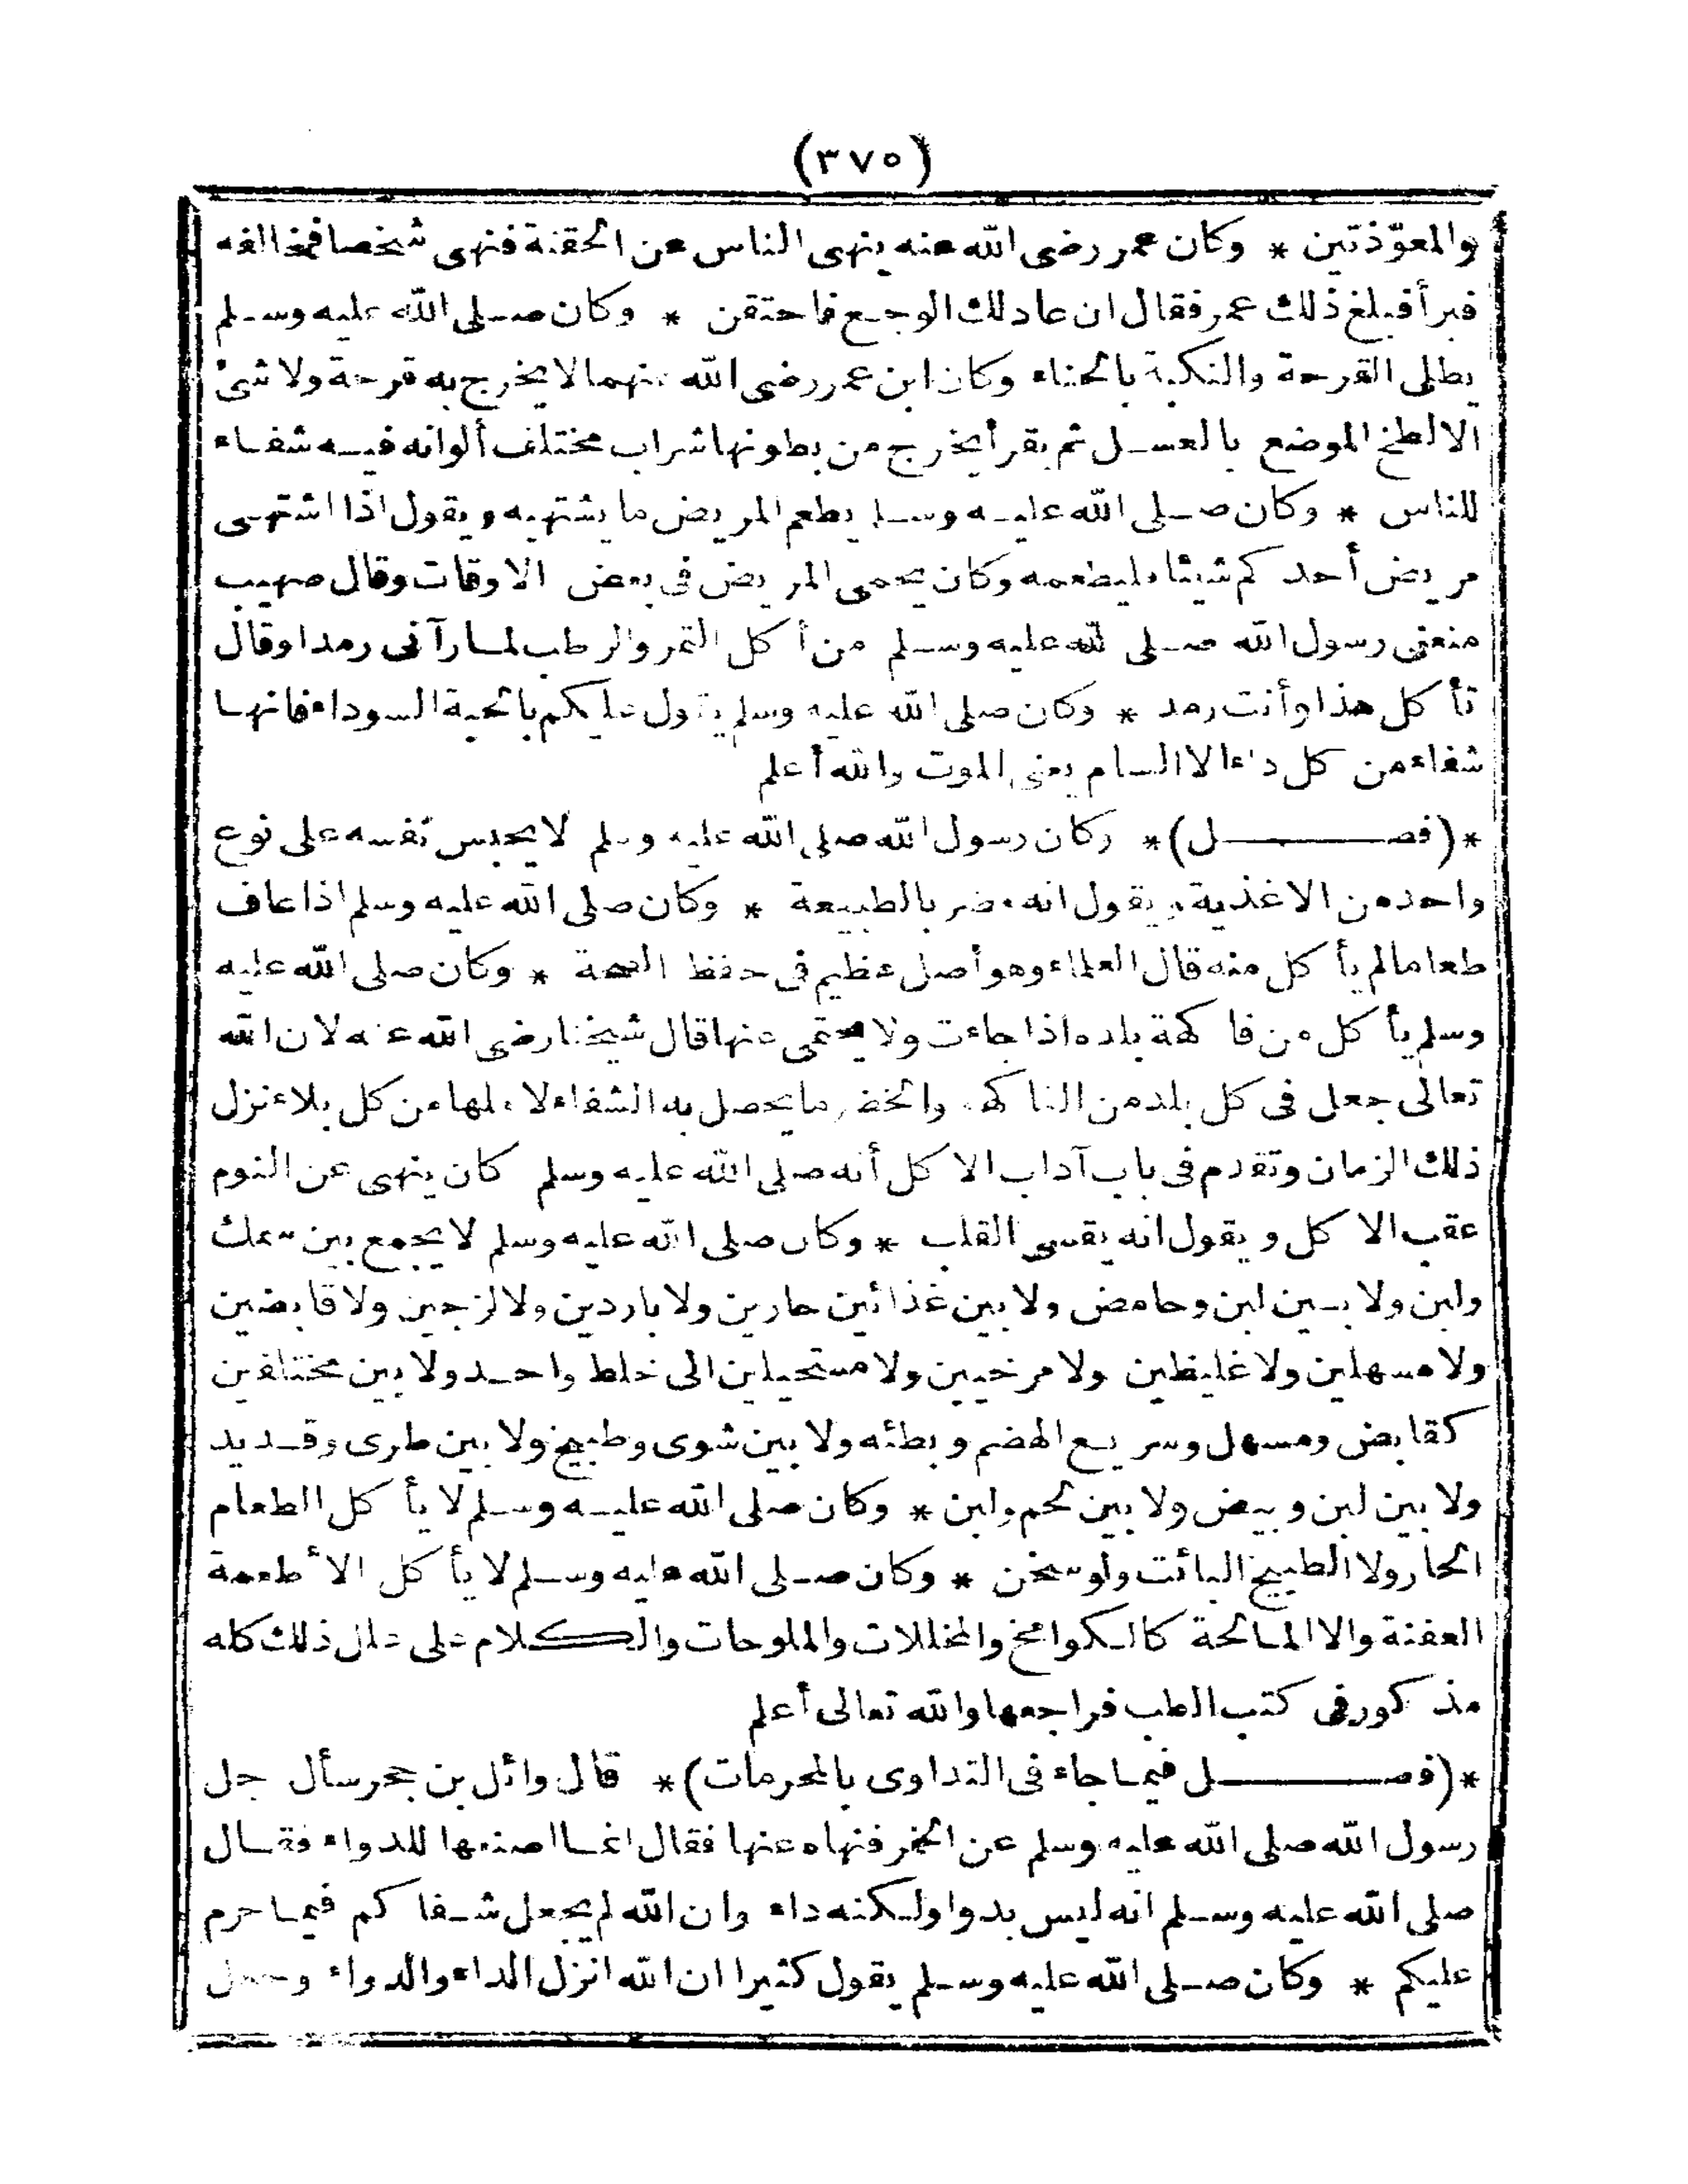 (٣٧٥)
والمعوّذتين * وكان عمر رضى الله عنه ينهى الناس عن الحقنة فنهى شخصا فخالفه
فبرأ فبلغ ذلك عمر فقال ان عاد لك الوجع فاحتقن * وكان صلى الله عليه وسلم
يطلى القرحة والنكبة بالحناء وكان ابن عمر رضى الله عنهما لا يخرج به قرحة ولا شئ
الا لطخ الموضع بالعسل ثم يقرأ يخرج من بطونها شراب مختلف ألوانه فيه شفاء
للناس * وكان صلى الله عليه وسلم يطعم المريض ما يشتهيه ويقول اذا اشتهى
مريض أحدكم شيئا فليطعمه وكان يحمى المريض فى بعض الاوقات وقال صهيب
منعنى رسول الله صلى الله عليه وسلم من أكل التمر والرطب لما رآنى رمدا وقال
تأكل هذا وأنت رمد * وكان صلى الله عليه وسلم يقول عليكم بالحبة السوداء فانها
شفاء من كل داء الا السام يعنى الموت والله أعلم
*(فصل)* وكان رسول الله صلى الله عليه وسلم لا يحبس نفسه على نوع
واحد من الاغذية ويقول انه مضر بالطبيعة * وكان صلى الله عليه وسلم اذا عاف
طعاما لم يأكل منه قال العلماء وهو أصل عظيم فى حفظ الصحة * وكان صلى الله عليه
وسلم يأكل من فاكهة بلده اذا جاءت ولا يحتمى عنها قال شيخنا رضى الله عنه لان الله
تعالى جعل فى كل بلد من الفاكهة والخضر ما يحصل به الشفاء لاهلها من كل بلاء نزل
ذلك الزمان وتقدم فى باب آداب الاكل أنه صلى الله عليه وسلم كان ينهى عن النوم
عقب الاكل ويقول انه يقسى القلب * وكان صلى الله عليه وسلم لا يجمع بين سمك
ولبن ولا بين لبن وحامض ولا بين غذائين حارين ولا باردين ولا لزجين ولا قابضين
ولا مسهلين ولا غليظين ولا مرخيين ولا مستحيلين الى خلط واحد ولا بين مختلفين
كقابض ومسهل وسريع الهضم وبطئه ولا بين شوى وطبيخ ولا بين طرى وقديد
ولا بين لبن وبيض ولا بين لحم ولبن * وكان صلى الله عليه وسلم لا يأكل الطعام
الحار ولا الطبيخ البائت ولو سخن * وكان صلى الله عليه وسلم لا يأكل الأطعمة
العفنة والا المالحة كالكوامخ والمخللات والملوحات والكلام على علل ذلك كله
مذكور فى كتب الطب فراجعها والله تعالى أعلم
*(فصل فيما جاء فى التداوى بالمحرمات)* قال وائل بن حجر سأل رجل
رسول الله صلى الله عليه وسلم عن الخمر فنهاه عنها فقال انما اصنعها للدواء فقال
صلى الله عليه وسلم انه ليس بدوا ولكنه داء وان الله لم يجعل شفاكم فيما حرم
عليكم * وكان صلى الله عليه وسلم يقول كثيرا ان الله انزل الداء والدواء وجعل